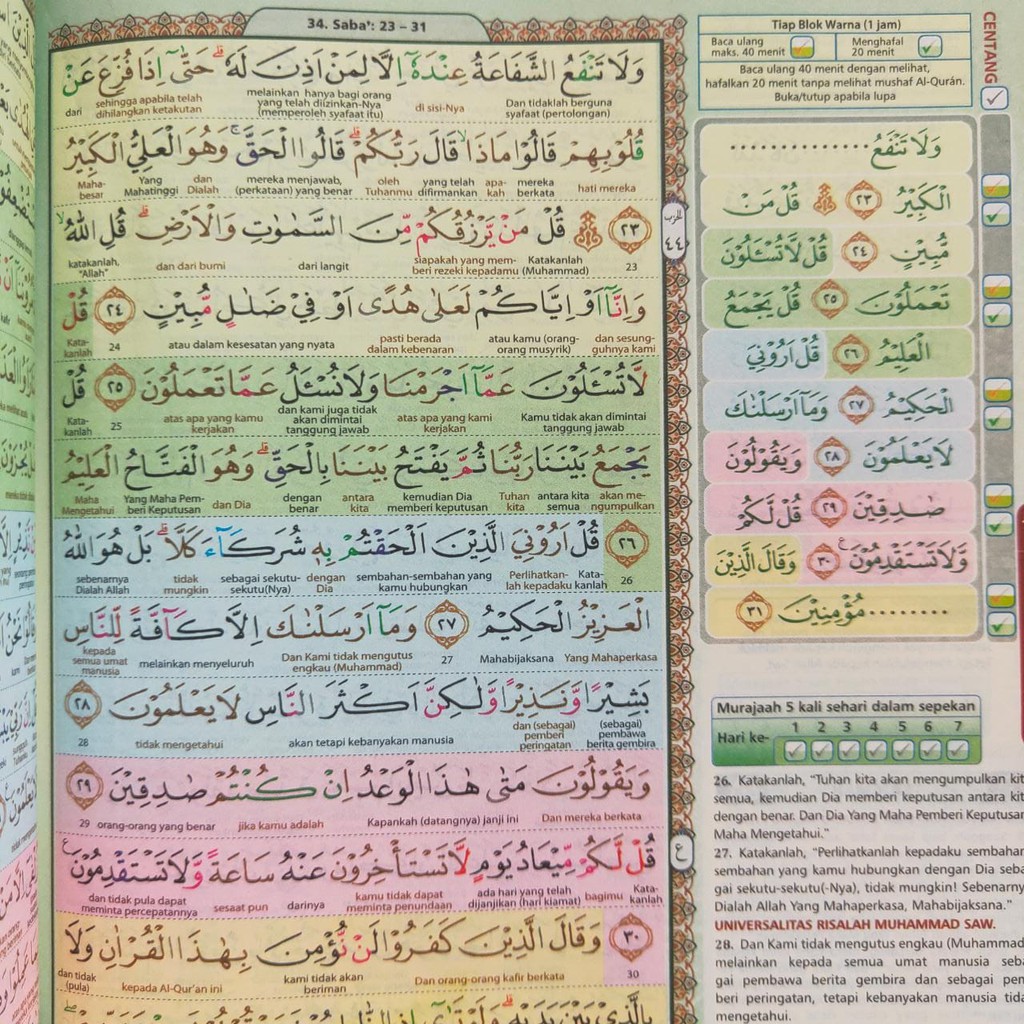 34. Saba': 23 – 31
وَلَا تَنْفَعُ الشَّفَاعَةُ عِنْدَهٗٓ اِلَّا لِمَنْ اَذِنَ لَهٗ ۗ حَتّٰىٓ اِذَا فُزِّعَ عَنْ
Dan tidaklah berguna syafaat (pertolongan)
di sisi-Nya
melainkan hanya bagi orang yang telah diizinkan-Nya (memperoleh syafaat itu)
sehingga apabila telah dihilangkan ketakutan
dari
قُلُوْبِهِمْ قَالُوْا مَاذَا ۙ قَالَ رَبُّكُمْ ۗ قَالُوا الْحَقَّ ۚ وَهُوَ الْعَلِيُّ الْكَبِيْرُ
hati mereka
mereka berkata
apa-kah
yang telah difirmankan
oleh Tuhanmu
mereka menjawab, (perkataan) yang benar
dan Dialah
Yang Mahatinggi
Maha-besar
٢٣ قُلْ مَنْ يَّرْزُقُكُمْ مِّنَ السَّمٰوٰتِ وَالْاَرْضِ ۗ قُلِ اللّٰهُ ۙ
23
Katakanlah (Muhammad)
siapakah yang mem-beri rezeki kepadamu
dari langit
dan dari bumi
katakanlah, "Allah"
وَاِنَّآ اَوْ اِيَّاكُمْ لَعَلٰى هُدًى اَوْ فِيْ ضَلٰلٍ مُّبِيْنٍ ٢٤ قُلْ
dan sesung-guhnya kami
atau kamu (orang-orang musyrik)
pasti berada dalam kebenaran
atau dalam kesesatan yang nyata
24
Kata-kanlah
لَّا تُسْـَٔلُوْنَ عَمَّآ اَجْرَمْنَا وَلَا نُسْـَٔلُ عَمَّا تَعْمَلُوْنَ ٢٥ قُلْ
Kamu tidak akan dimintai tanggung jawab
atas apa yang kami kerjakan
dan kami juga tidak akan dimintai tanggung jawab
atas apa yang kamu kerjakan
25
Kata-kanlah
يَجْمَعُ بَيْنَنَا رَبُّنَا ثُمَّ يَفْتَحُ بَيْنَنَا بِالْحَقِّ ۗ وَهُوَ الْفَتَّاحُ الْعَلِيْمُ
akan me-ngumpulkan
antara kita semua
Tuhan kita
kemudian Dia memberi keputusan
antara kita
dengan benar
dan Dia
Yang Maha Pem-beri Keputusan
Maha Mengetahui
٢٦ قُلْ اَرُوْنِيَ الَّذِيْنَ اَلْحَقْتُمْ بِهٖ شُرَكَاۤءَ كَلَّا ۗ بَلْ هُوَ اللّٰهُ
26
Kata-kanlah
Perlihatkan-lah kepadaku
sembahan-sembahan yang kamu hubungkan
dengan Dia
sebagai sekutu-sekutu(Nya)
tidak mungkin
sebenarnya Dialah Allah
الْعَزِيْزُ الْحَكِيْمُ ٢٧ وَمَآ اَرْسَلْنٰكَ اِلَّا كَاۤفَّةً لِّلنَّاسِ
Yang Mahaperkasa
Mahabijaksana
27
Dan Kami tidak mengutus engkau (Muhammad)
melainkan menyeluruh
kepada semua umat manusia
بَشِيْرًا وَّنَذِيْرًا وَّلٰكِنَّ اَكْثَرَ النَّاسِ لَا يَعْلَمُوْنَ ٢٨
(sebagai) pembawa berita gembira
dan (sebagai) pemberi peringatan
akan tetapi kebanyakan manusia
tidak mengetahui
28
وَيَقُوْلُوْنَ مَتٰى هٰذَا الْوَعْدُ اِنْ كُنْتُمْ صٰدِقِيْنَ ٢٩
Dan mereka berkata
Kapankah (datangnya) janji ini
jika kamu adalah
orang-orang yang benar
29
قُلْ لَّكُمْ مِّيْعَادُ يَوْمٍ لَّا تَسْتَأْخِرُوْنَ عَنْهُ سَاعَةً وَّلَا تَسْتَقْدِمُوْنَ
Kata-kanlah
bagimu
ada hari yang telah dijanjikan (hari kiamat)
kamu tidak dapat meminta penundaan
darinya
sesaat pun
dan tidak pula dapat meminta percepatannya
٣٠ وَقَالَ الَّذِيْنَ كَفَرُوْا لَنْ نُّؤْمِنَ بِهٰذَا الْقُرْاٰنِ وَلَا
30
Dan orang-orang kafir berkata
kami tidak akan beriman
kepada Al-Qur'an ini
dan tidak (pula)
بِالَّذِيْ بَيْنَ يَدَيْهِ ۗ وَلَوْ تَرٰىٓ اِذِ
الحزب
٤٤
ع
Tiap Blok Warna (1 jam)
Baca ulang maks. 40 menit
Menghafal 20 menit
Baca ulang 40 menit dengan melihat,
hafalkan 20 menit tanpa melihat mushaf Al-Qurán.
Buka/tutup apabila lupa
CENTANG
وَلَا تَنْفَعُ ..............
الْكَبِيْرُ ٢٣ قُلْ مَنْ
مُّبِيْنٍ ٢٤ قُلْ لَّا تُسْـَٔلُوْنَ
تَعْمَلُوْنَ ٢٥ قُلْ يَجْمَعُ
الْعَلِيْمُ ٢٦ قُلْ اَرُوْنِيَ
الْحَكِيْمُ ٢٧ وَمَآ اَرْسَلْنٰكَ
لَا يَعْلَمُوْنَ ٢٨ وَيَقُوْلُوْنَ
صٰدِقِيْنَ ٢٩ قُلْ لَّكُمْ
وَّلَا تَسْتَقْدِمُوْنَ ٣٠ وَقَالَ الَّذِيْنَ
.........مُؤْمِنِيْنَ ٣١
Murajaah 5 kali sehari dalam sepekan
Hari ke- 1 2 3 4 5 6 7
26. Katakanlah, "Tuhan kita akan mengumpulkan kita
semua, kemudian Dia memberi keputusan antara kita
dengan benar. Dan Dia Yang Maha Pemberi Keputusan
Maha Mengetahui."
27. Katakanlah, "Perlihatkanlah kepadaku sembahan-
sembahan yang kamu hubungkan dengan Dia seba-
gai sekutu-sekutu(-Nya), tidak mungkin! Sebenarnya
Dialah Allah Yang Mahaperkasa, Mahabijaksana."
UNIVERSALITAS RISALAH MUHAMMAD SAW.
28. Dan Kami tidak mengutus engkau (Muhammad)
melainkan kepada semua umat manusia seba-
gai pembawa berita gembira dan sebagai pem-
beri peringatan, tetapi kebanyakan manusia tidak
mengetahui.